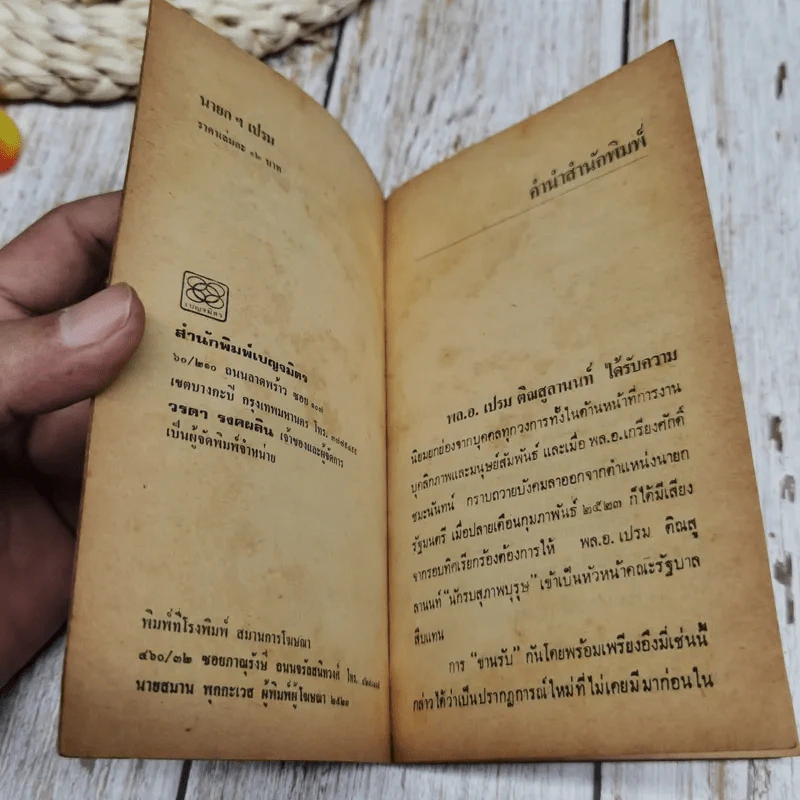 นายก ฯ เปรม
ราคาเล่มละ ๑๒ บาท
เบญจมิตร
สำนักพิมพ์เบญจมิตร
๖๐/๒๑๐ ถนนลาดพร้าว ซอย ๑๐๗
เขตบางกะปี กรุงเทพมหานคร โทร.
วรตา รงคผลิน เจ้าของและผู้จัดการ
เป็นผู้จัดพิมพ์จำหน่าย
พิมพ์ที่โรงพิมพ์ สมานการโฆษณา
๔๖๐/๓๒ ซอยภาณุรังษี ถนนจรัลสนิทวงศ์ โทร.
นายสมาน พุกกะเวส ผู้พิมพ์ผู้โฆษณา ๒๕๒๓
คำนำสำนักพิมพ์
พล.อ. เปรม ติณสูลานนท์ ได้รับความ
นิยมยกย่องจากบุคคลทุกวงการทั้งในด้านหน้าที่การงาน
บุคลิกภาพและมนุษย์สัมพันธ์ และเมื่อ พล.อ.เกรียงศักดิ์
ชมะนันทน์ กราบถวายบังคมลาออกจากตำแหน่งนายก
รัฐมนตรี เมื่อปลายเดือนกุมภาพันธ์ ๒๕๒๓ ก็ได้มีเสียง
จากรอบทิศเรียกร้องต้องการให้ พล.อ. เปรม ติณสู
ลานนท์ "นักรบสุภาพบุรุษ" เข้าเป็นหัวหน้าคณะรัฐบาล
สืบแทน
การ "ขานรับ" กันโดยพร้อมเพรียงอึงมี่เช่นนี้
กล่าวได้ว่าเป็นปรากฏการณ์ใหม่ที่ไม่เคยมีมาก่อนใน